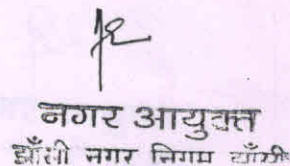 नगर आयुक्त
झाँसी नगर निगम झाँसी